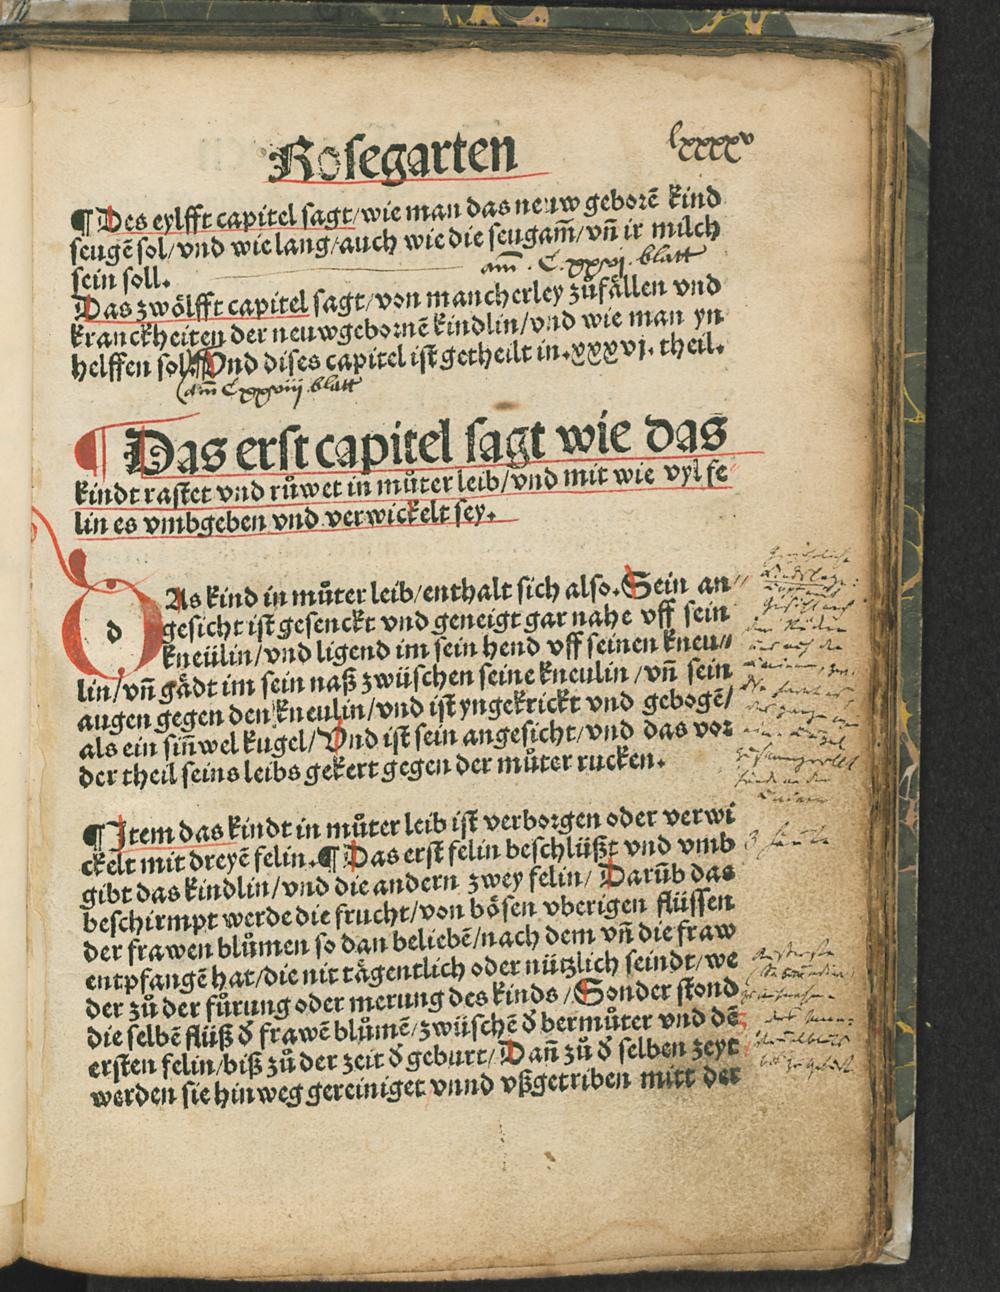 Rosegarten
lxxxxv
¶ Des eylfft capitel sagt/wie man das neuw geborē kind
seugē sol/vnd wie lang/auch wie die seugam̄/vn̄ ir milch
sein soll.
am̄ . C.xxvj. blatt
Das zwölfft capitel sagt/von mancherley zůfällen vnd
kranckheiten der neuwgebornē kindlin/vnd wie man yn
helffen sol. Vnd dises capitel ist getheilt in.xxxvj. theil.
am̄ Cxxviij blatt
¶ Das erst capitel sagt wie das
kindt rastet vnd růwet in můter leib/vnd mit wie vyl fe
lin es vmbgeben vnd verwickelt sey.
d As kind in můter leib/enthalt sich also. Sein an⸗
gesicht ist gesenckt vnd geneigt gar nahe vff sein
kneülin/vnd ligend im sein hend vff seinen kneu⸗
lin/vn̄ gådt im sein naß zwüschen seine kneulin/vn̄ sein
augen gegen den kneulin/vnd ist yngekrickt vnd gebogē/
als ein sin̄wel kugel/Vnd ist sein angesicht/vnd das vor
der theil seins leibs gekert gegen der můter rucken.
¶ Item das kindt in můter leib ist verborgen oder verwi
ckelt mit dreyē felin.¶ Das erst felin beschlüßt vnd vmb
gibt das kindlin/vnd die andern zwey felin/ Darūb das
beschirmpt werde die frucht/von bösen vberigen flüssen
der frawen blůmen so dan beliebē/nach dem vn̄ die fraw
entpfangē hat/die nit tågentlich oder nützlich seindt/we
der zů der fůrung oder merung des kinds/Sonder stond
die selbē flüß đ frawē blůmē/zwüschē đ bermůter vnd dē
ersten felin/biß zů der zeit đ geburt/Dan̄ zů đ selben zeyt
werden sie hinweg gereiniget vnnd vßgetriben mitt der
3 häute